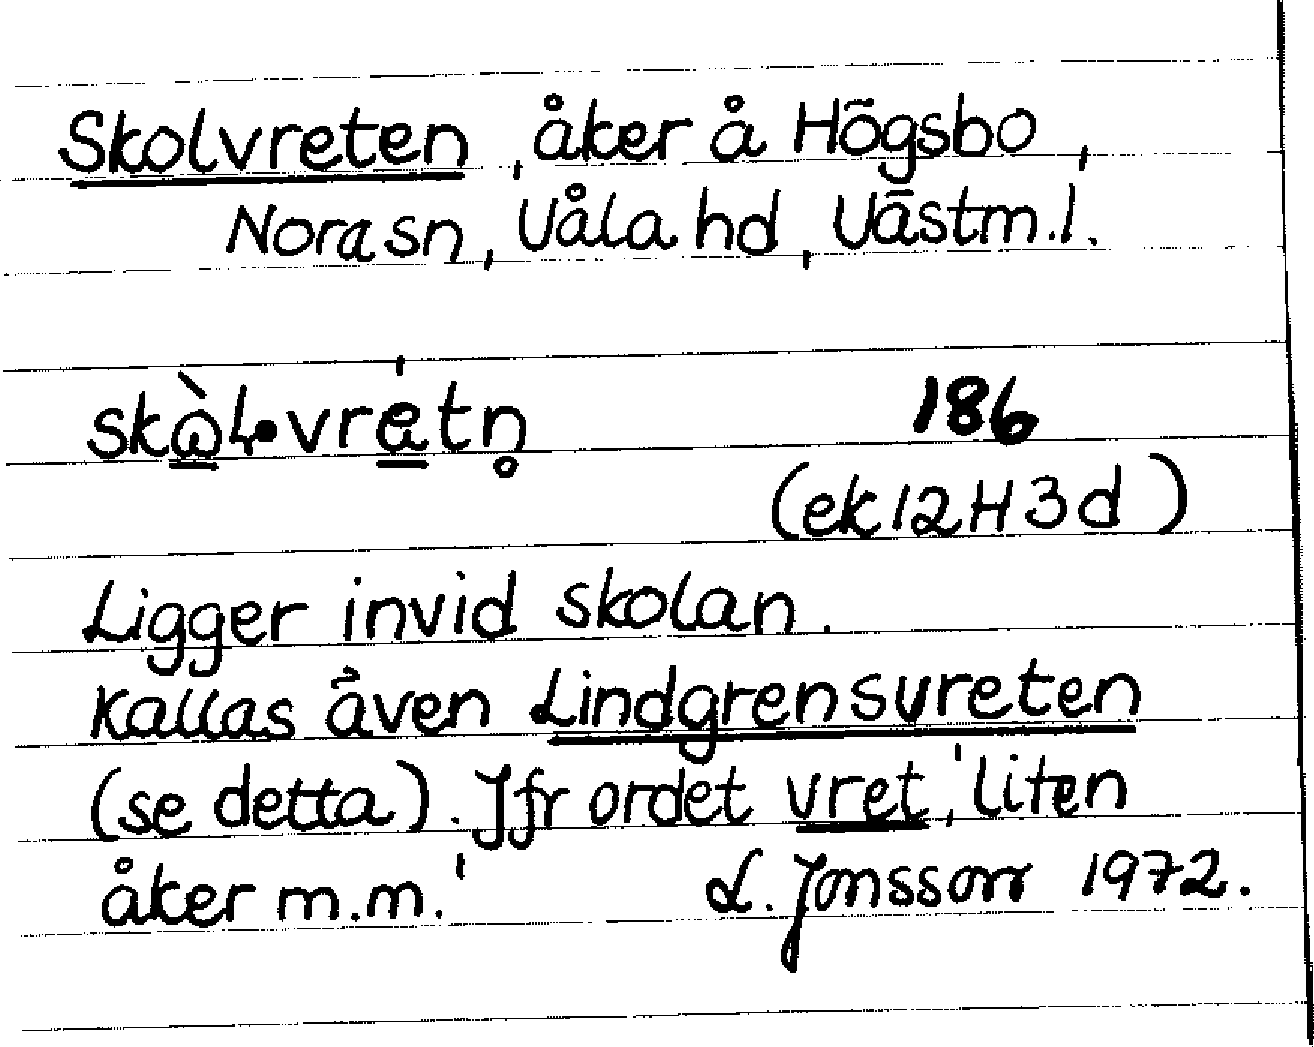 Skolvreten, åker å Högsbo,
Nora sn, Våla hd, Västm.l.
186
(ek 12H3d)
Ligger invid skolan.
Kallas även Lindgrensvreten
(se detta). Jfr ordet vret, 'liten
åker m.m.' L. Jonsson 1972.